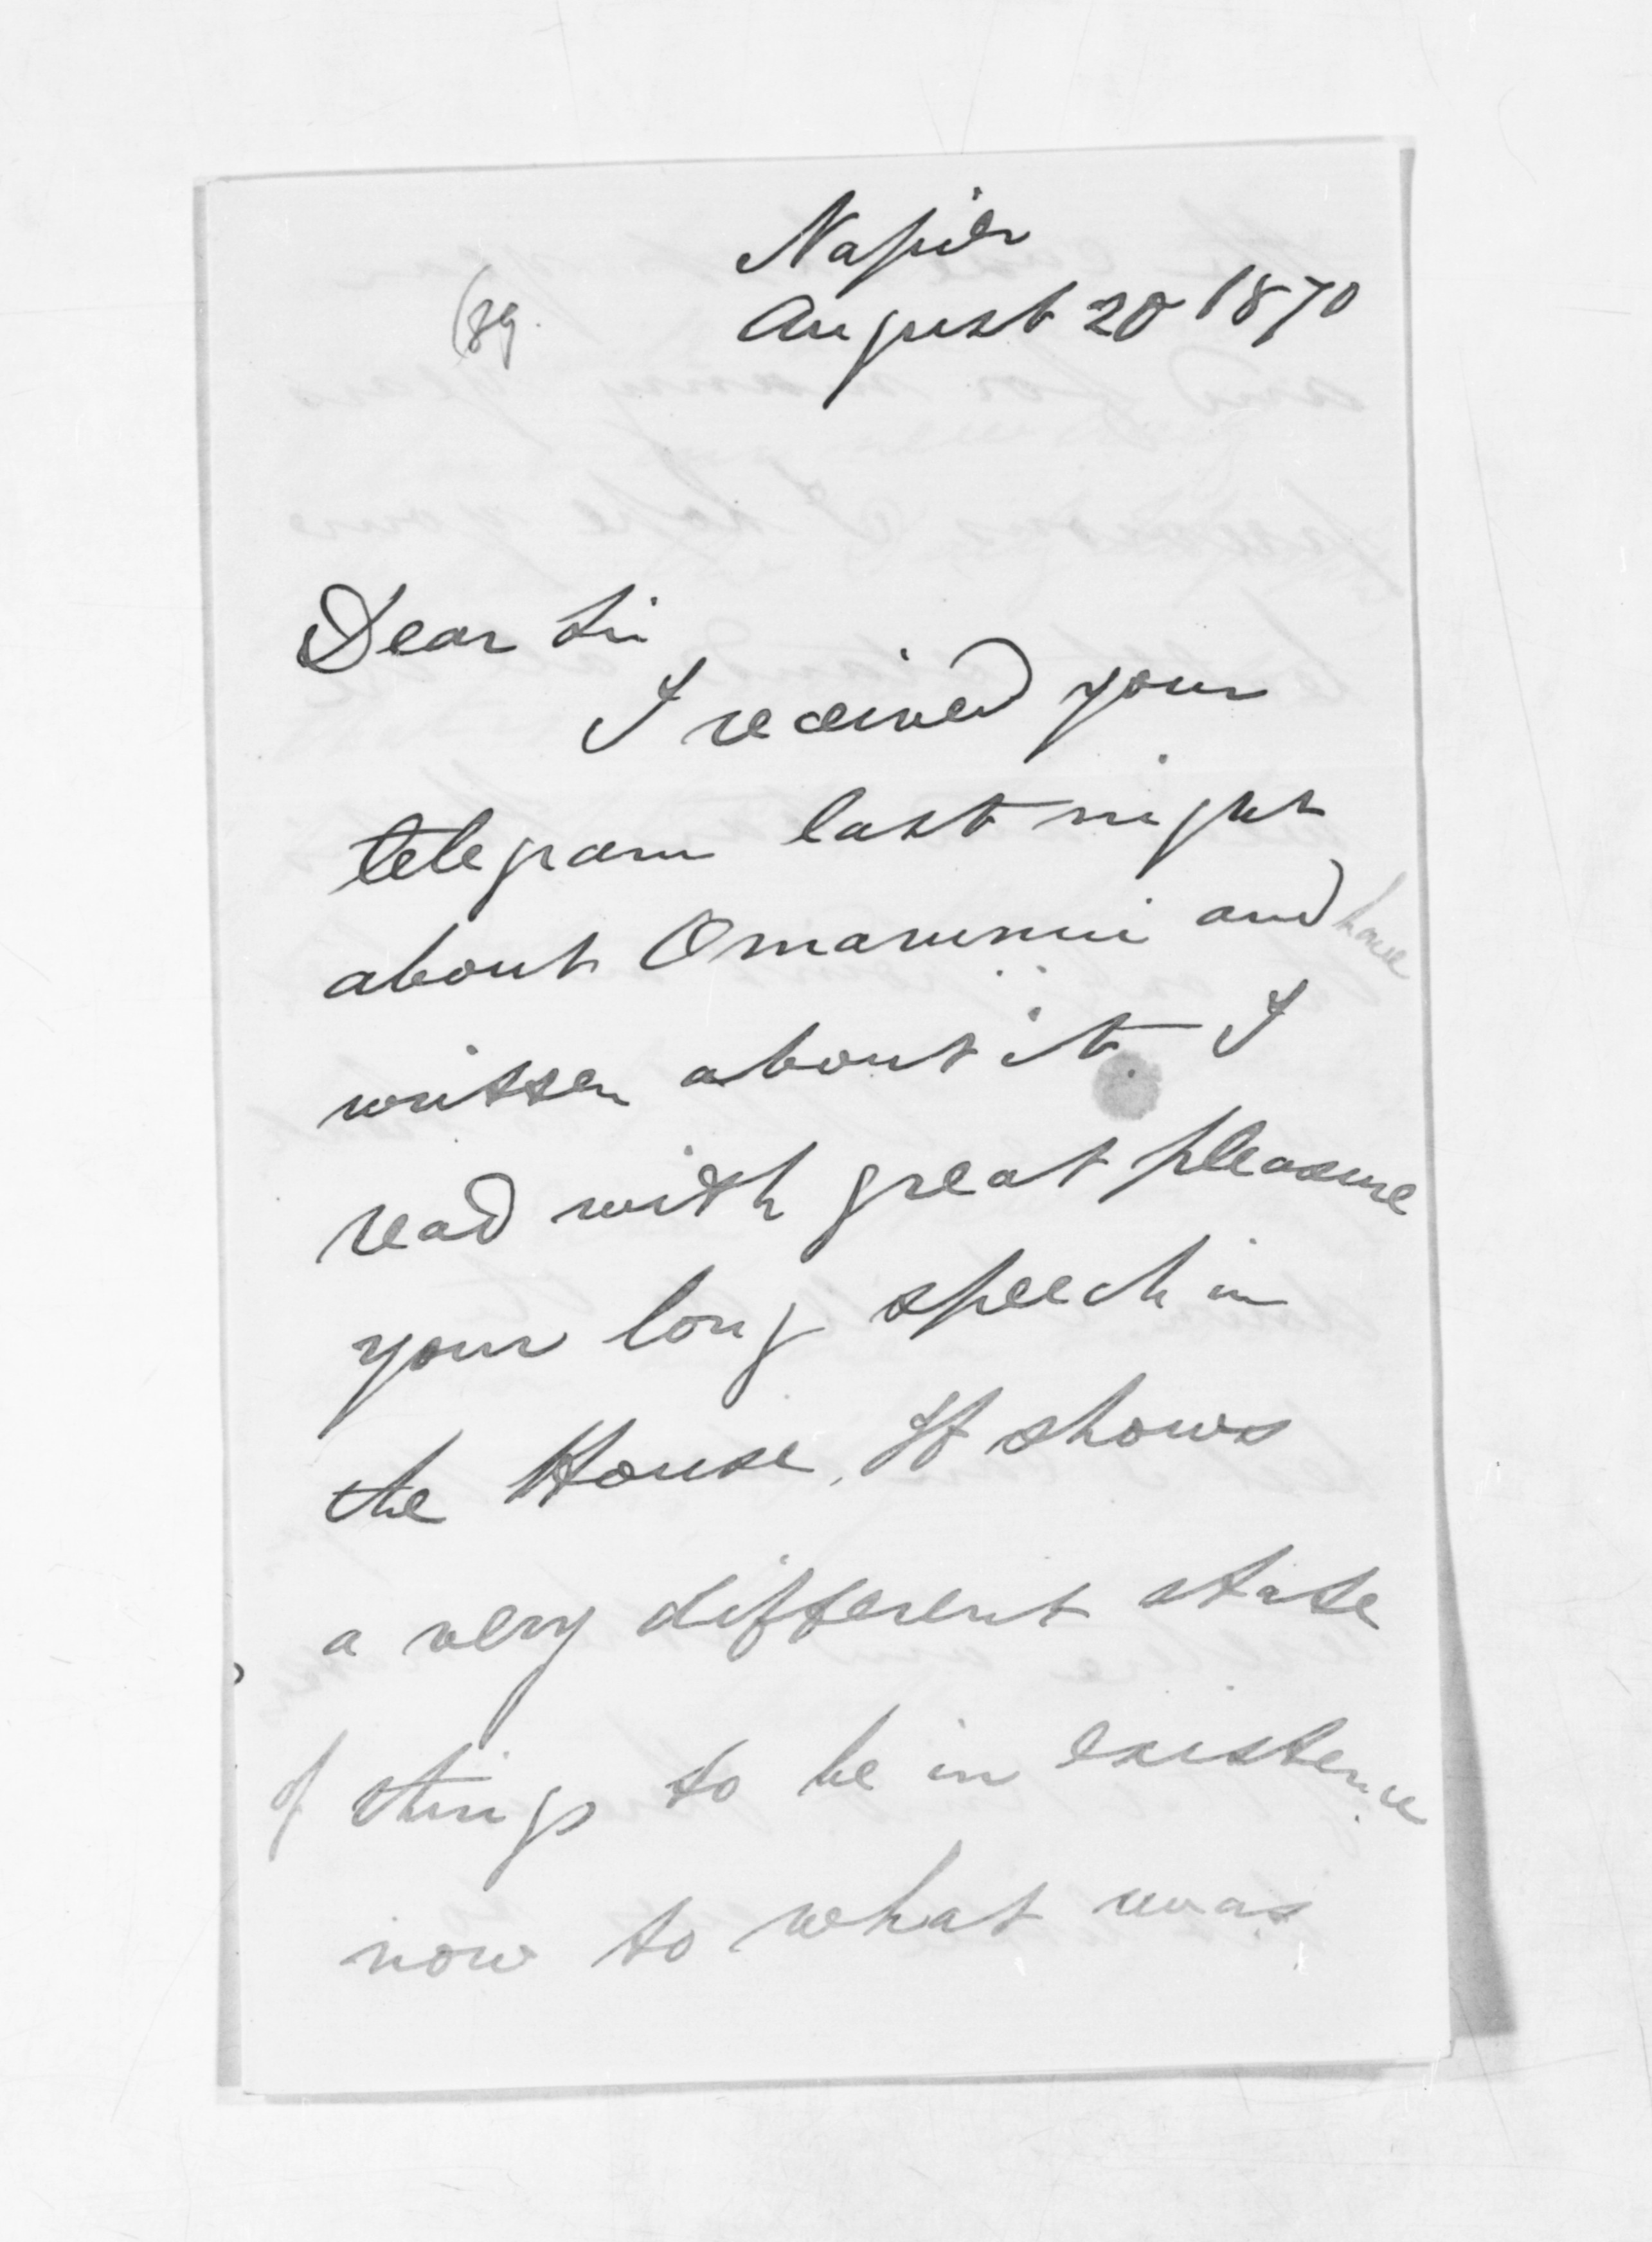 Napier
August 20 1870
(89.
Dear Sir
I received your
telegram last night
about Omarunui and have
written about it. I
read with great pleasure
your long speech in
the House. It shows
a very different state
of things to be in existence
now to what was